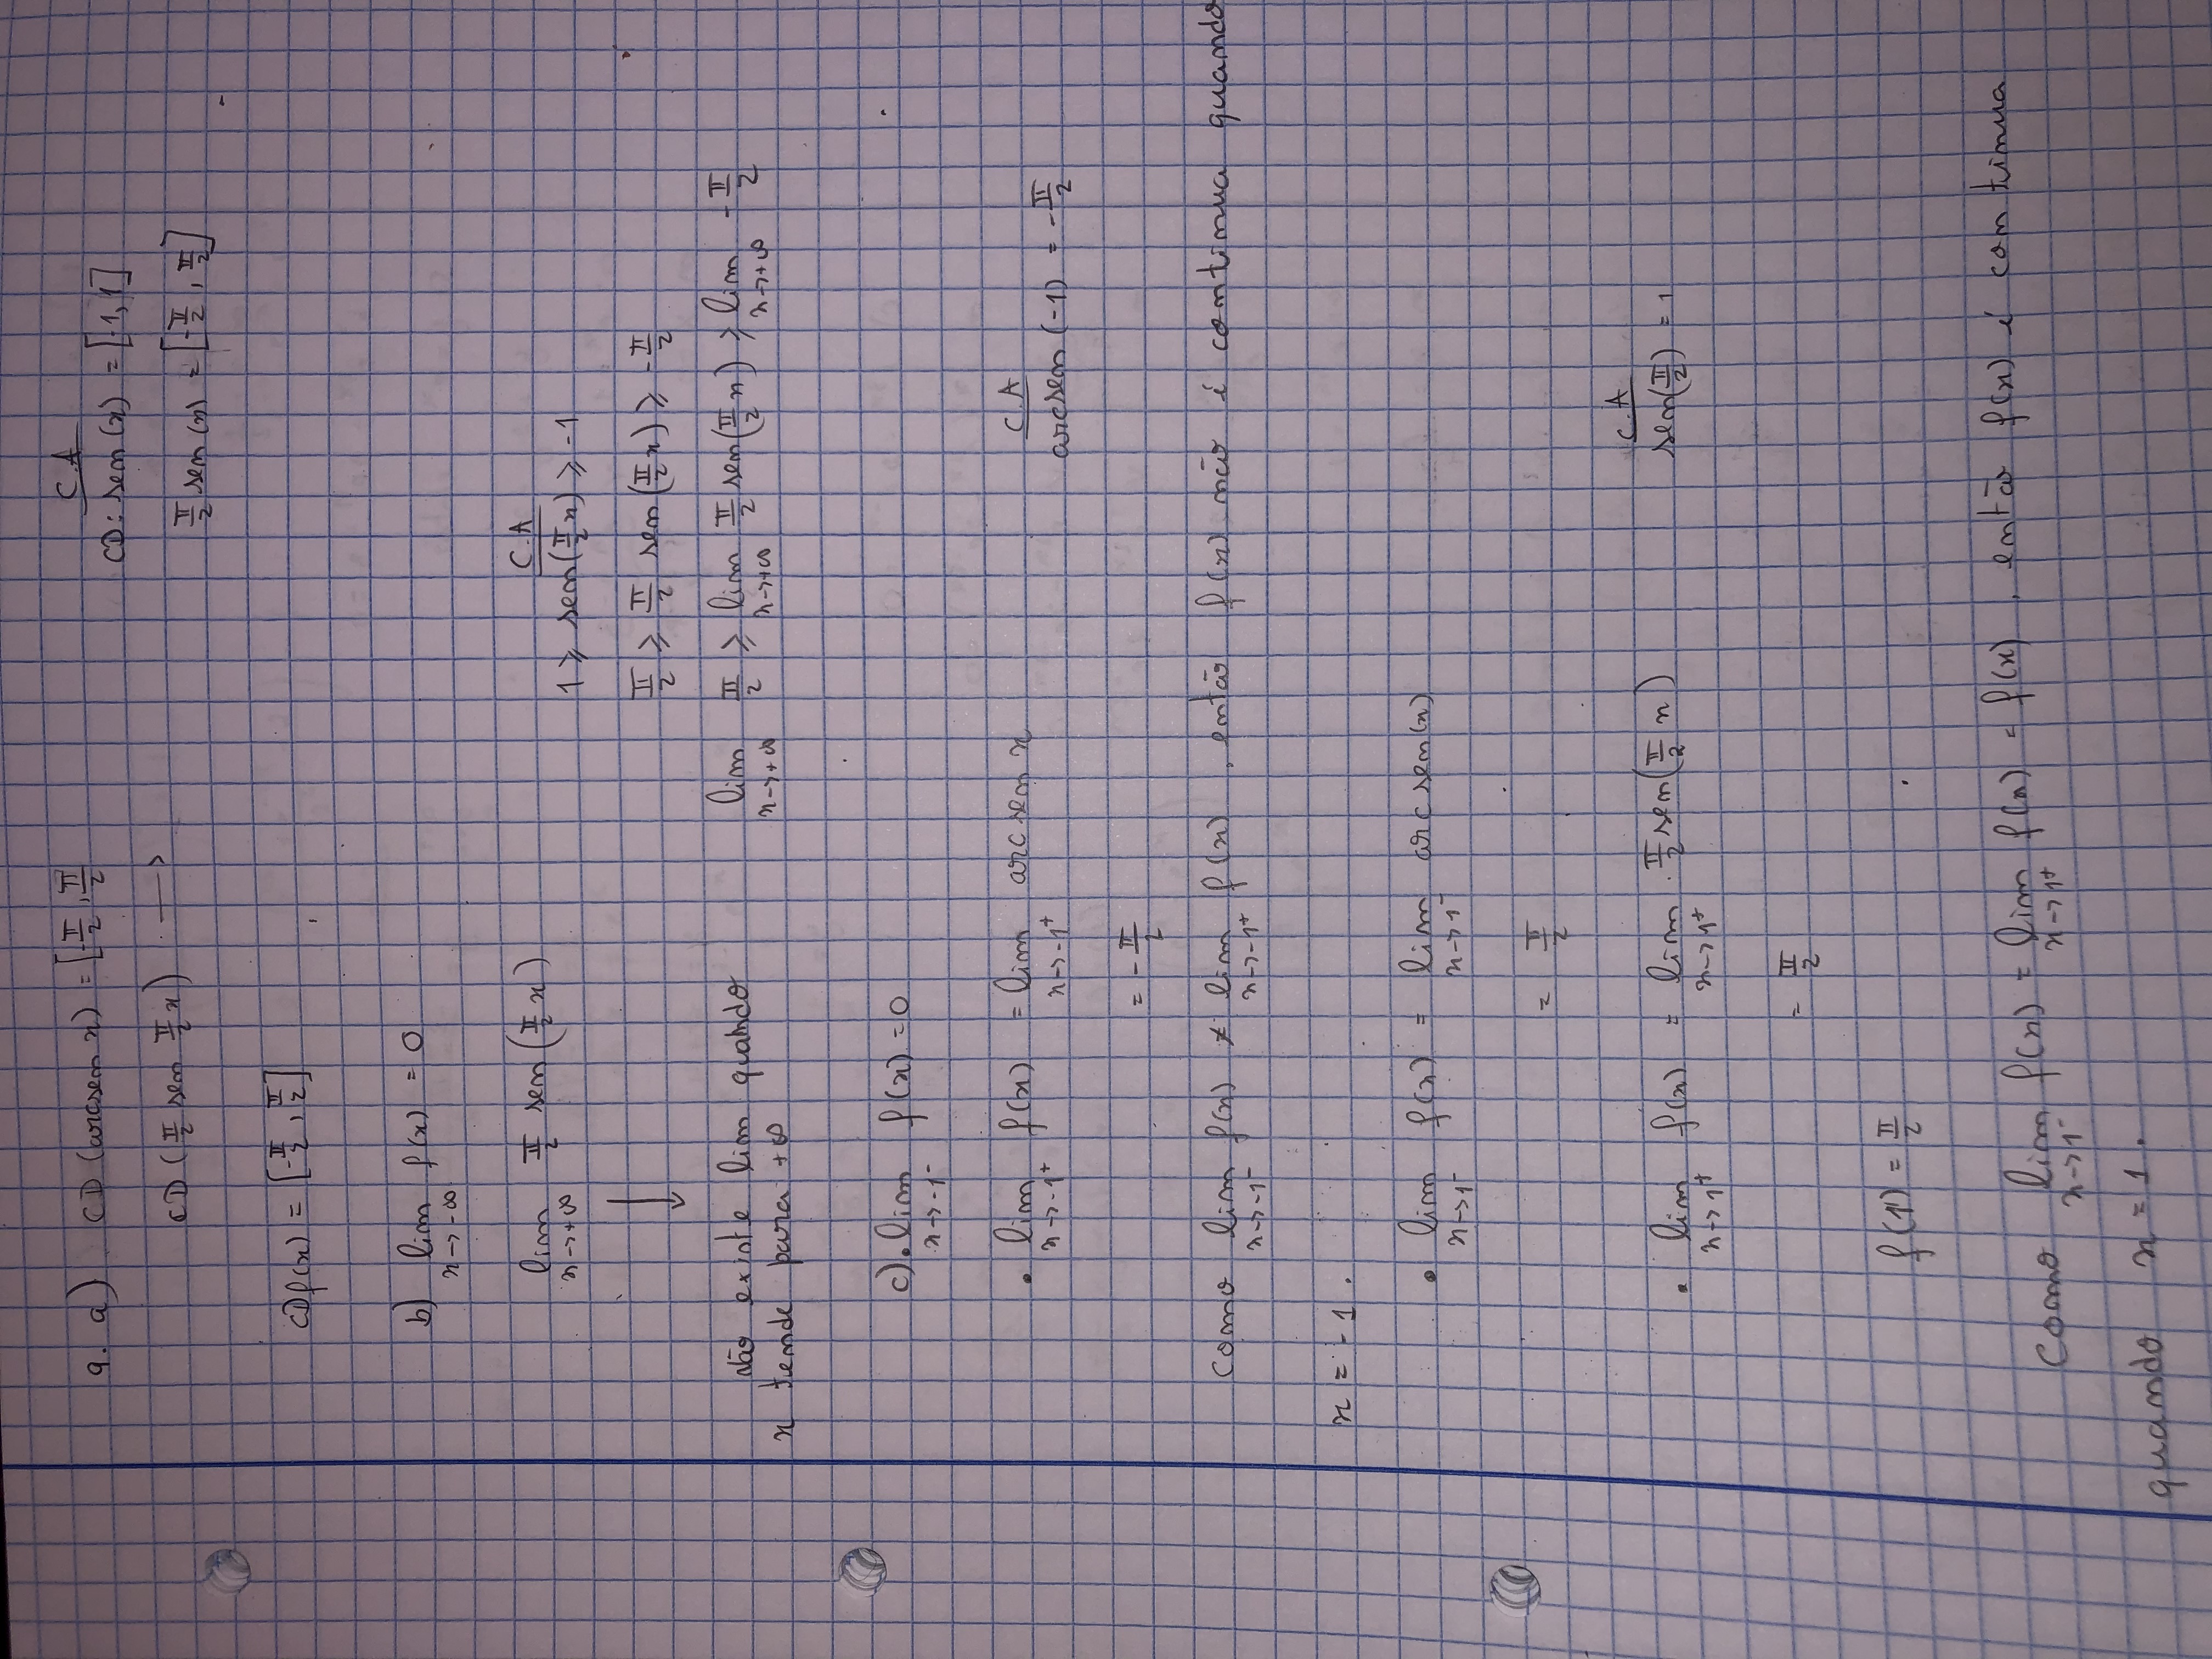 9. a) CD (arcsen x) = [-π/2, π/2
C.A
CD: sen(x) = [-1, 1]
CD (π/2 sen π/2 x) →
π/2 sen(x) = [-π/2, π/2]
CDf(x) = [-π/2, π/2]
b) lim x→-∞ f(x) = 0
lim x→+∞ π/2 sen(π/2 x)
C.A
1 ≥ sen(π/2 x) ≥ -1
π/2 ≥ π/2 sen(π/2 x) ≥ -π/2
não existe lim quando
x tende para +∞
lim x→+∞ π/2 ≥ lim x→+∞ π/2 sen(π/2 x) ≥ lim x→+∞ -π/2
c) • lim x→-1⁻ f(x) = 0
• lim x→-1⁺ f(x) = lim x→-1⁺ arcsen x
C.A
arcsen (-1) = -π/2
= -π/2
Como lim x→-1⁻ f(x) ≠ lim x→-1⁺ f(x), então f(x) não é continua quando
x = -1.
• lim x→1⁻ f(x) = lim x→1⁻ arcsen(x)
= π/2
• lim x→1⁺ f(x) = lim x→1⁺ π/2 sen(π/2 x)
C.A
sen(π/2) = 1
= π/2
f(1) = π/2
Como lim x→1⁻ f(x) = lim x→1⁺ f(x) = f(x), então f(x) é continua
quando x = 1.